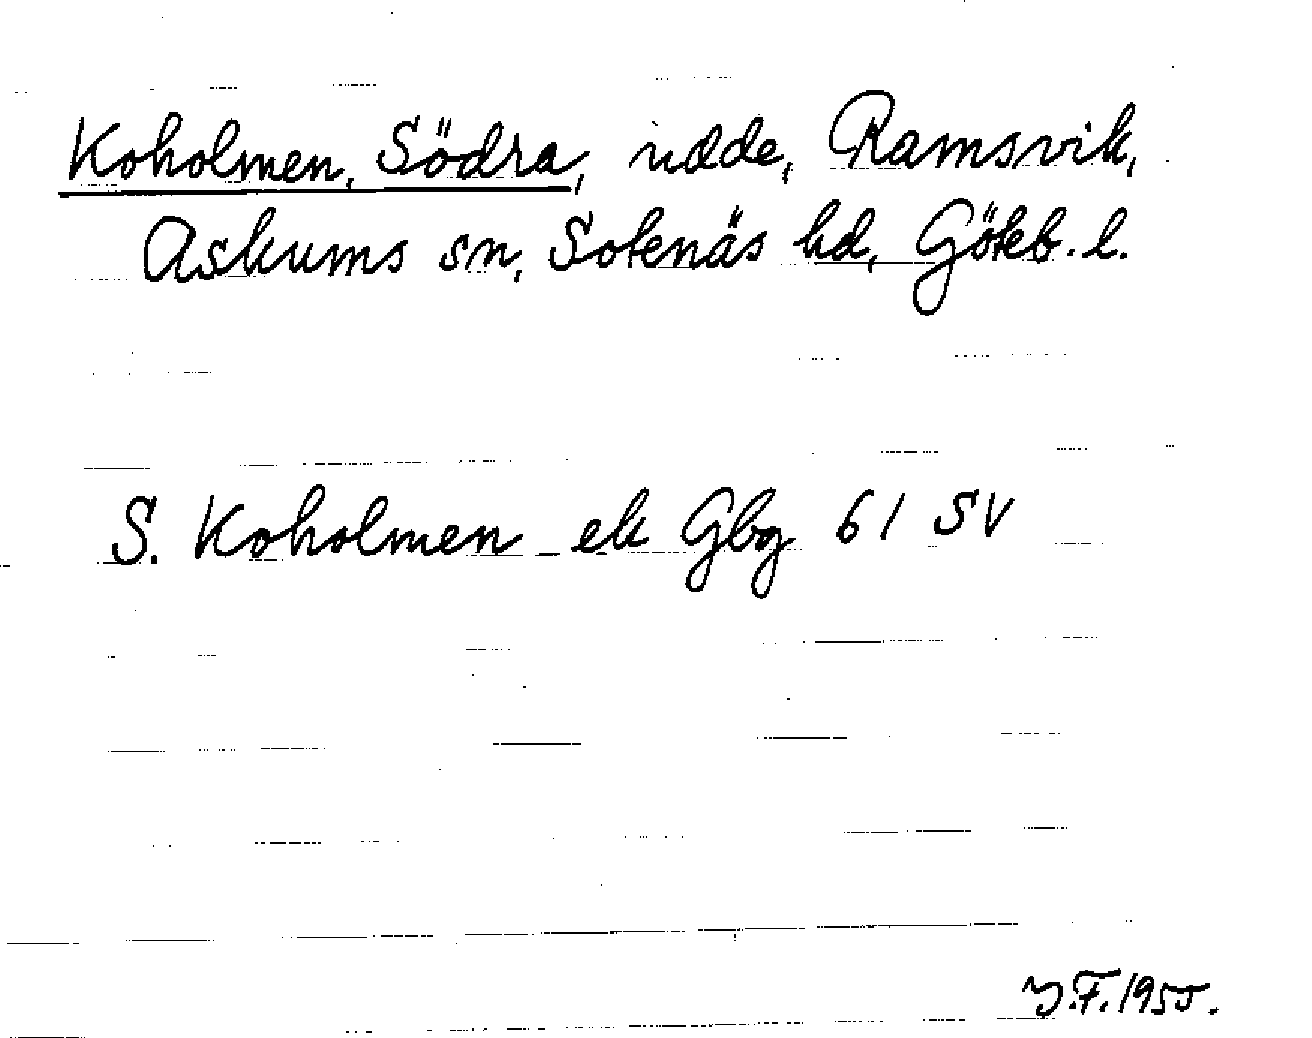 Koholmen, Södra, udde, Ramsvik,
Askums sn, Sotenäs hd, Göteb. l.
S. Koholmen ek Gbg 61 SV
Y.F. 1955.